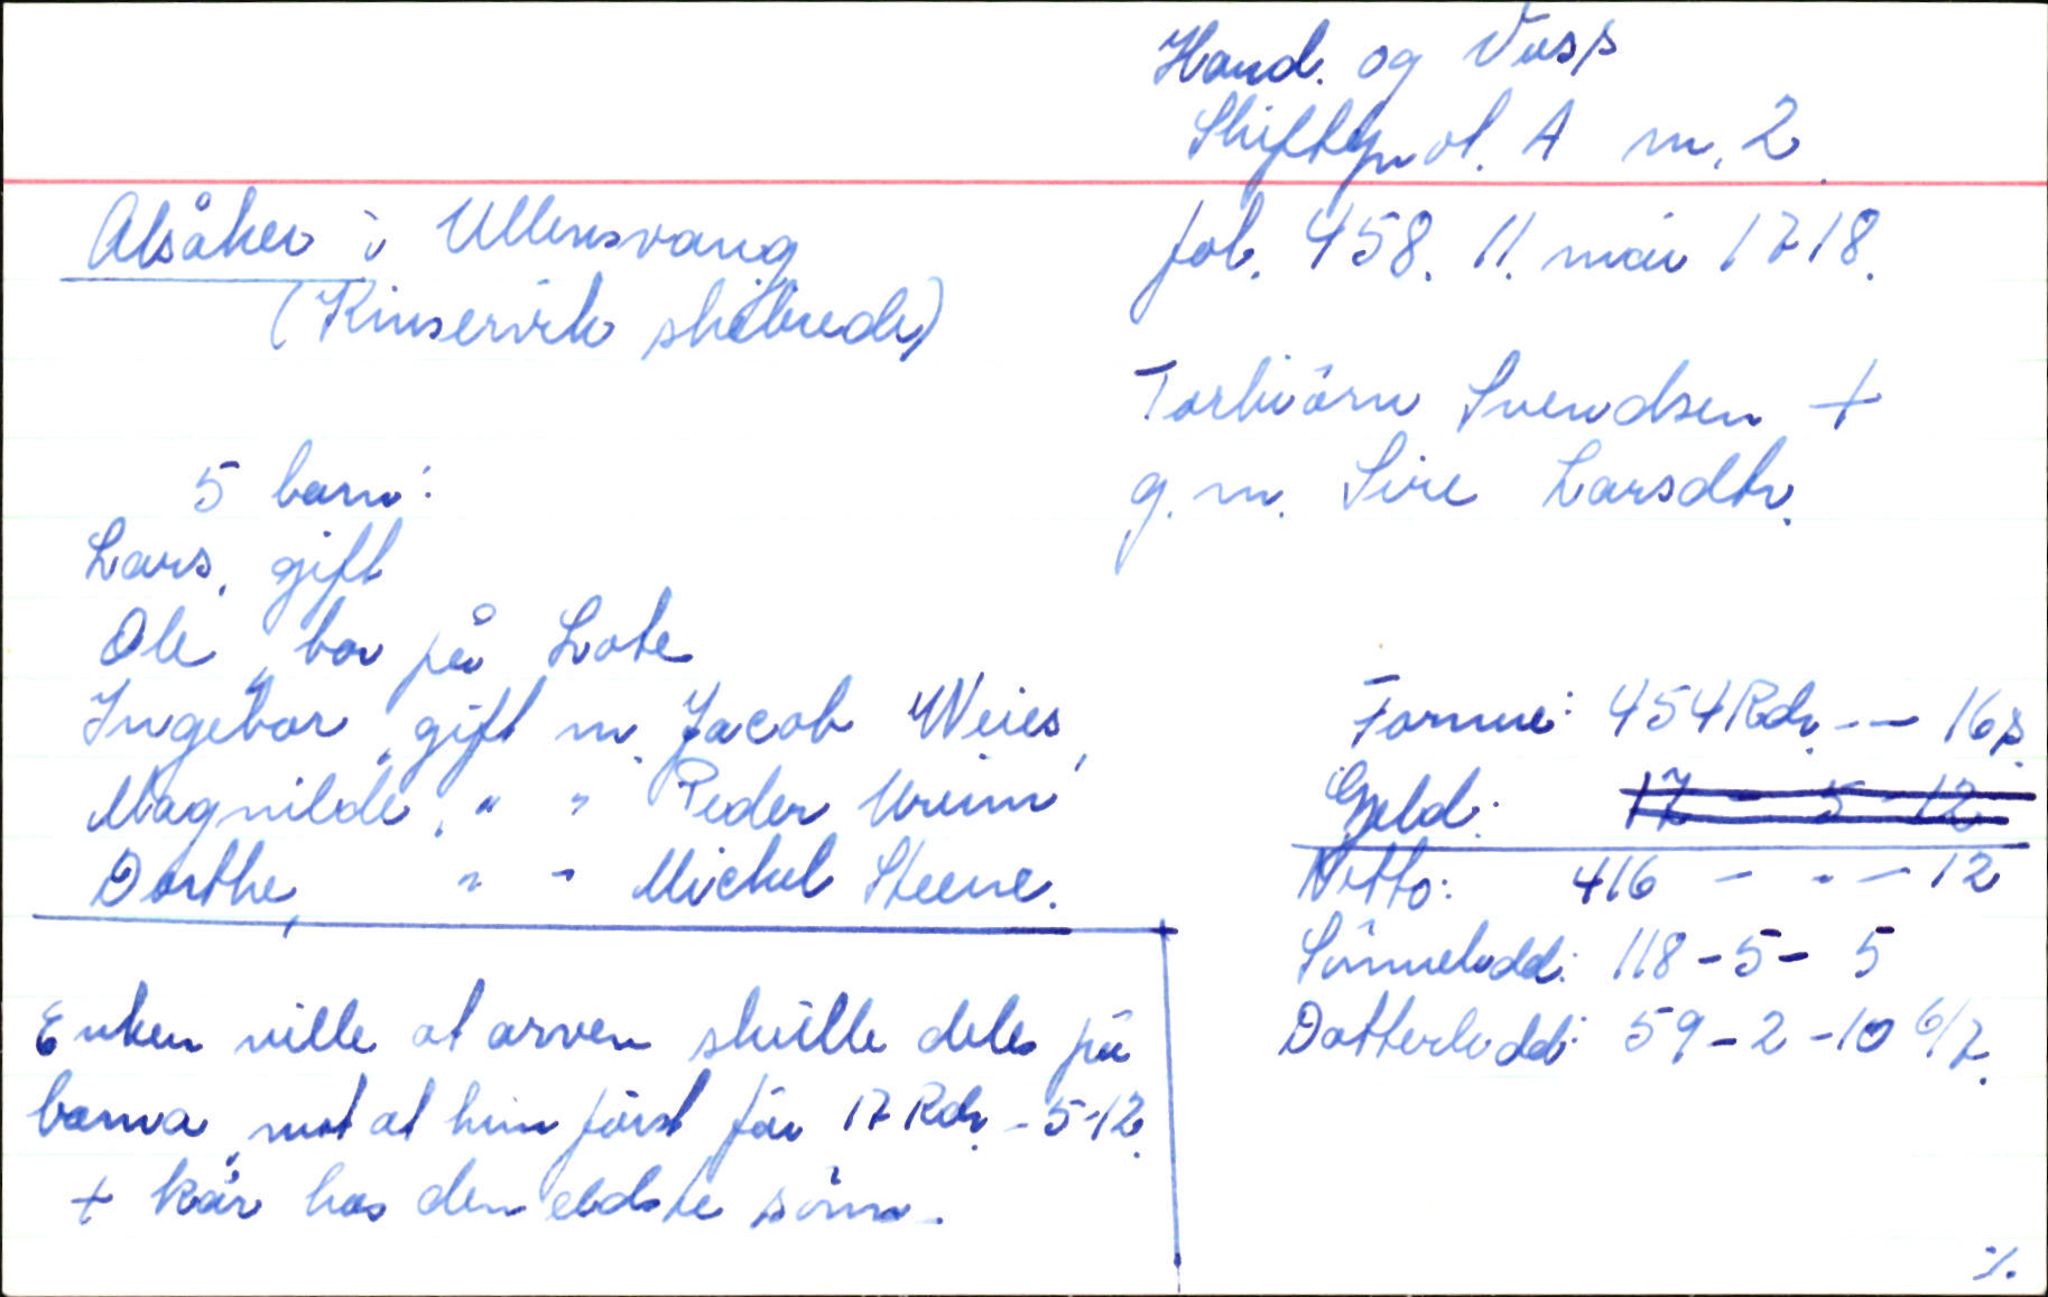 Hard. og Voss
Skifteprot. A nr. 2
fol. 458. 11. mai 1718.
Alsåker i Ullensvang
(Kinservik skibrede)
Torbiörn Svendsen +
g. m. Sire Larsdtr.
5 barn:
Lars, gift
Ole, bor på Lote
Ingebor, gift m. Jacob Weies,
Magnilde, " " Peder Ureim
Dorthe, " " Michel Steene.
Enken ville at arven skulle deles på
barna, mot at hun først får 17 Rdr. - 5-12
+ kår hos den eldste sönn.
Formue: 454 Rdr. -- 16 s.
Gjeld: 17 - 5 - 12
Netto: 416 - . - 12
Sönnelodd: 118 - 5 - 5
Datterlodd: 59 - 2 - 10 6/7.
./.